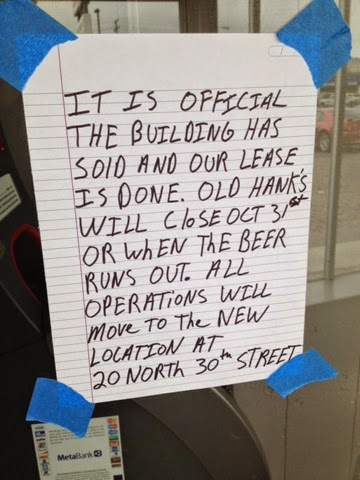 IT IS OFFICIAL
THE BUILDING HAS
SOlD AND OUR LEASE
IS DONE. OLD HANK'S
WILL CLOSE OCT 31st
OR WHEN THE BEER
RUNS OUT. ALL
OPERATIONS WILL
MOVE TO THE NEW
LOCATION AT
20 NORTH 30th STREET
MetaBank